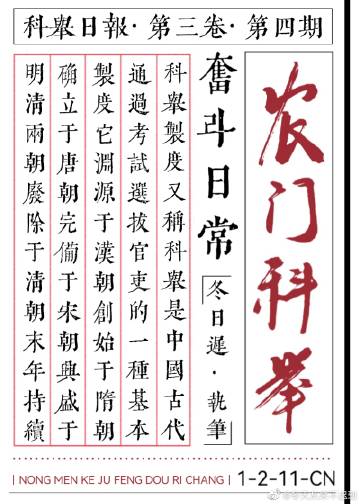 科舉日報·第三卷·第四期
农门科举
奮斗日常
冬日遲·執筆
科舉製度又稱科舉是中國古代
通過考試選拔官吏的一種基本
製度它淵源于漢朝創始于隋朝
确立于唐朝完備于宋朝興盛于
明清兩朝廢除于清朝末年持續
NONG MEN KE JU FENG DOU RI CHANG
1-2-11-CN